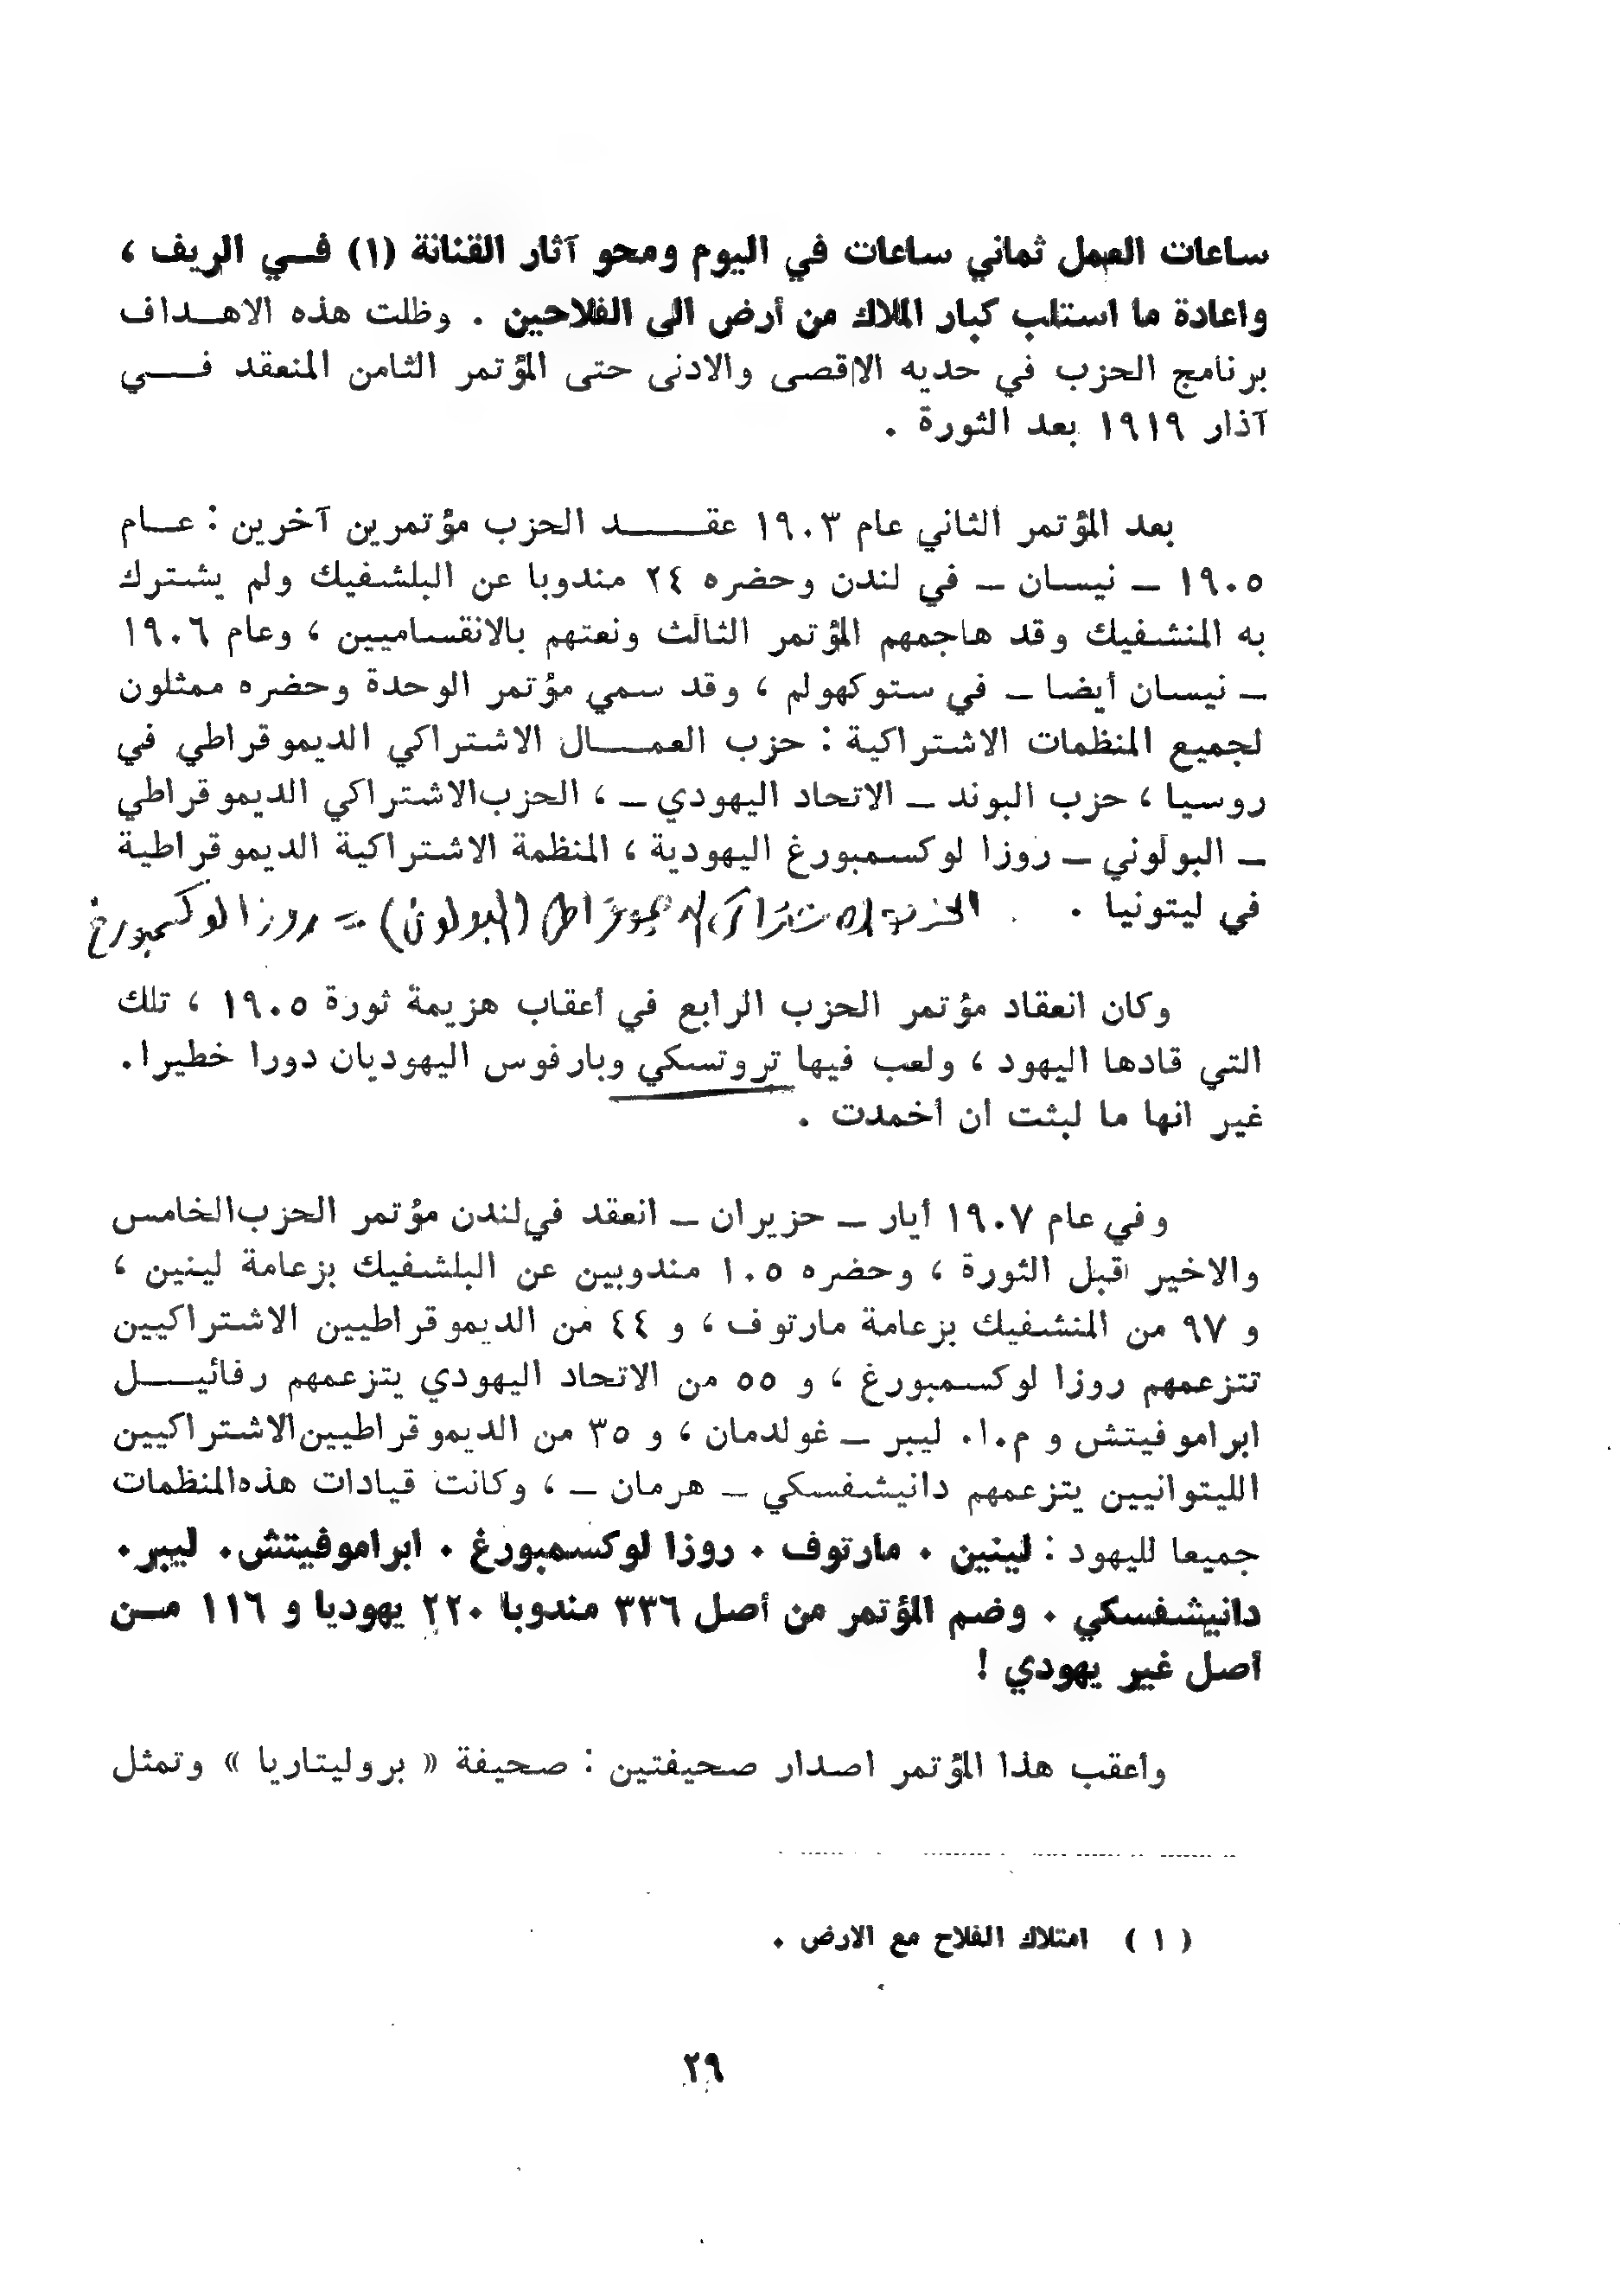 ساعات العمل ثماني ساعات في اليوم ومحو آثار القنانة (١) فــي الريف ،
واعادة ما استلب كبار الملاك من أرض الى الفلاحين . وظلت هذه الاهــداف
برنامج الحزب في حديه الاقصى والادنى حتى المؤتمر الثامن المنعقد فــــي
آذار ١٩١٩ بعد الثورة .
بعد المؤتمر الثاني عام ١٩٠٣ عقـــــد الحزب مؤتمرين آخرين : عــام
١٩٠٥ – نيسان – في لندن وحضره ٢٤ مندوبا عن البلشفيك ولم يشترك
به المنشفيك وقد هاجمهم المؤتمر الثالث ونعتهم بالانقساميين ، وعام ١٩٠٦
– نيسان أيضا – في ستوكهولم ، وقد سمي مؤتمر الوحدة وحضره ممثلون
لجميع المنظمات الاشتراكية : حزب العمـــال الاشتراكي الديموقراطي في
روسيا ، حزب البوند – الاتحاد اليهودي – ، الحزب الاشتراكي الديموقراطي
– البولوني – روزا لوكسمبورغ اليهودية ، المنظمة الاشتراكية الديموقراطية
في ليتونيا . الحزب الاشتراكي الديموقراطي (البولوني) = روزا لوكسمبورغ
وكان انعقاد مؤتمر الحزب الرابع في أعقاب هزيمة ثورة ١٩٠٥ ، تلك
التي قادها اليهود ، ولعب فيها تروتسكي وبارفوس اليهوديان دورا خطيرا.
غير انها ما لبثت ان أخمدت .
وفي عام ١٩٠٧ أيار – حزيران – انعقد في لندن مؤتمر الحزب الخامس
والاخير قبل الثورة ، وحضره ١٠٥ مندوبين عن البلشفيك بزعامة لينين ،
و ٩٧ من المنشفيك بزعامة مارتوف ، و ٤٤ من الديموقراطيين الاشتراكيين
تتزعمهم روزا لوكسمبورغ ، و ٥٥ من الاتحاد اليهودي يتزعمهم رفائيـــل
ابراموفيتش و م.ا. ليبر – غولدمان ، و ٣٥ من الديموقراطيين الاشتراكيين
الليتوانيين يتزعمهم دانيشفسكي – هرمان – ، وكانت قيادات هذه المنظمات
جميعا لليهود : لينين . مارتوف . روزا لوكسمبورغ . ابراموفيتش. ليبر.
دانيشفسكي . وضم المؤتمر من أصل ٣٣٦ مندوبا ٢٢٠ يهوديا و ١١٦ مــن
أصل غير يهودي !
وأعقب هذا المؤتمر اصدار صحيفتين : صحيفة « بروليتاريا » وتمثل
( ١ ) امتلاك الفلاح مع الارض .
٢٩